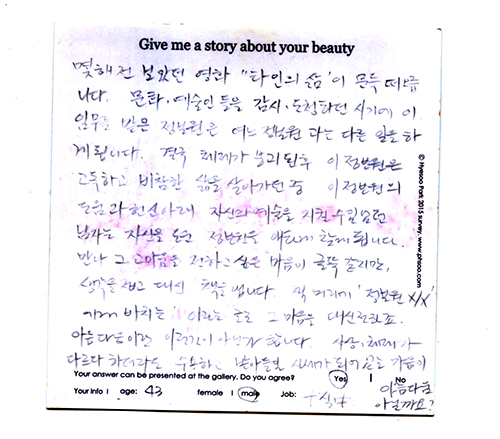 Give me a story about your beauty
몇해전 보았던 영화 "타인의 삶"이 문득 떠오릅
니다. 문화·예술인 등을 감시·도청하던 시기에 이
임무를 맡은 정보원은 여느 정보원과는 다른 일을 하
게됩니다. 결국 체제가 붕괴된후 이 정보원은
고독하고 비참한 삶을 살아가던 중 이 정보원의
도움과 헌신아래 자신의 예술을 지킬수 있었던
남자는 자신을 도운 정보원을 찾게됩니다.
만나 그 고마움을 전하고싶은 마음이 굴뚝 같지만,
생각을 접고 대신 책을 냅니다. 책 머리에 '정보원 XX/X'
에게 바치는' 이라는 글로 그 마음을 대신전하죠.
아름다운이란 이런것이 아닌가 합니다. 사상·체제가
다르다 하더라도 수용하고 받아들일 시대가 되어 같은 가슴이
아름다움
아닐까요?
Your answer can be presented at the gallery. Do you agree? Yes | No
Your info | age: 43 female | male Job:
© Hyewon Park 2015 survey. www.phoo.com